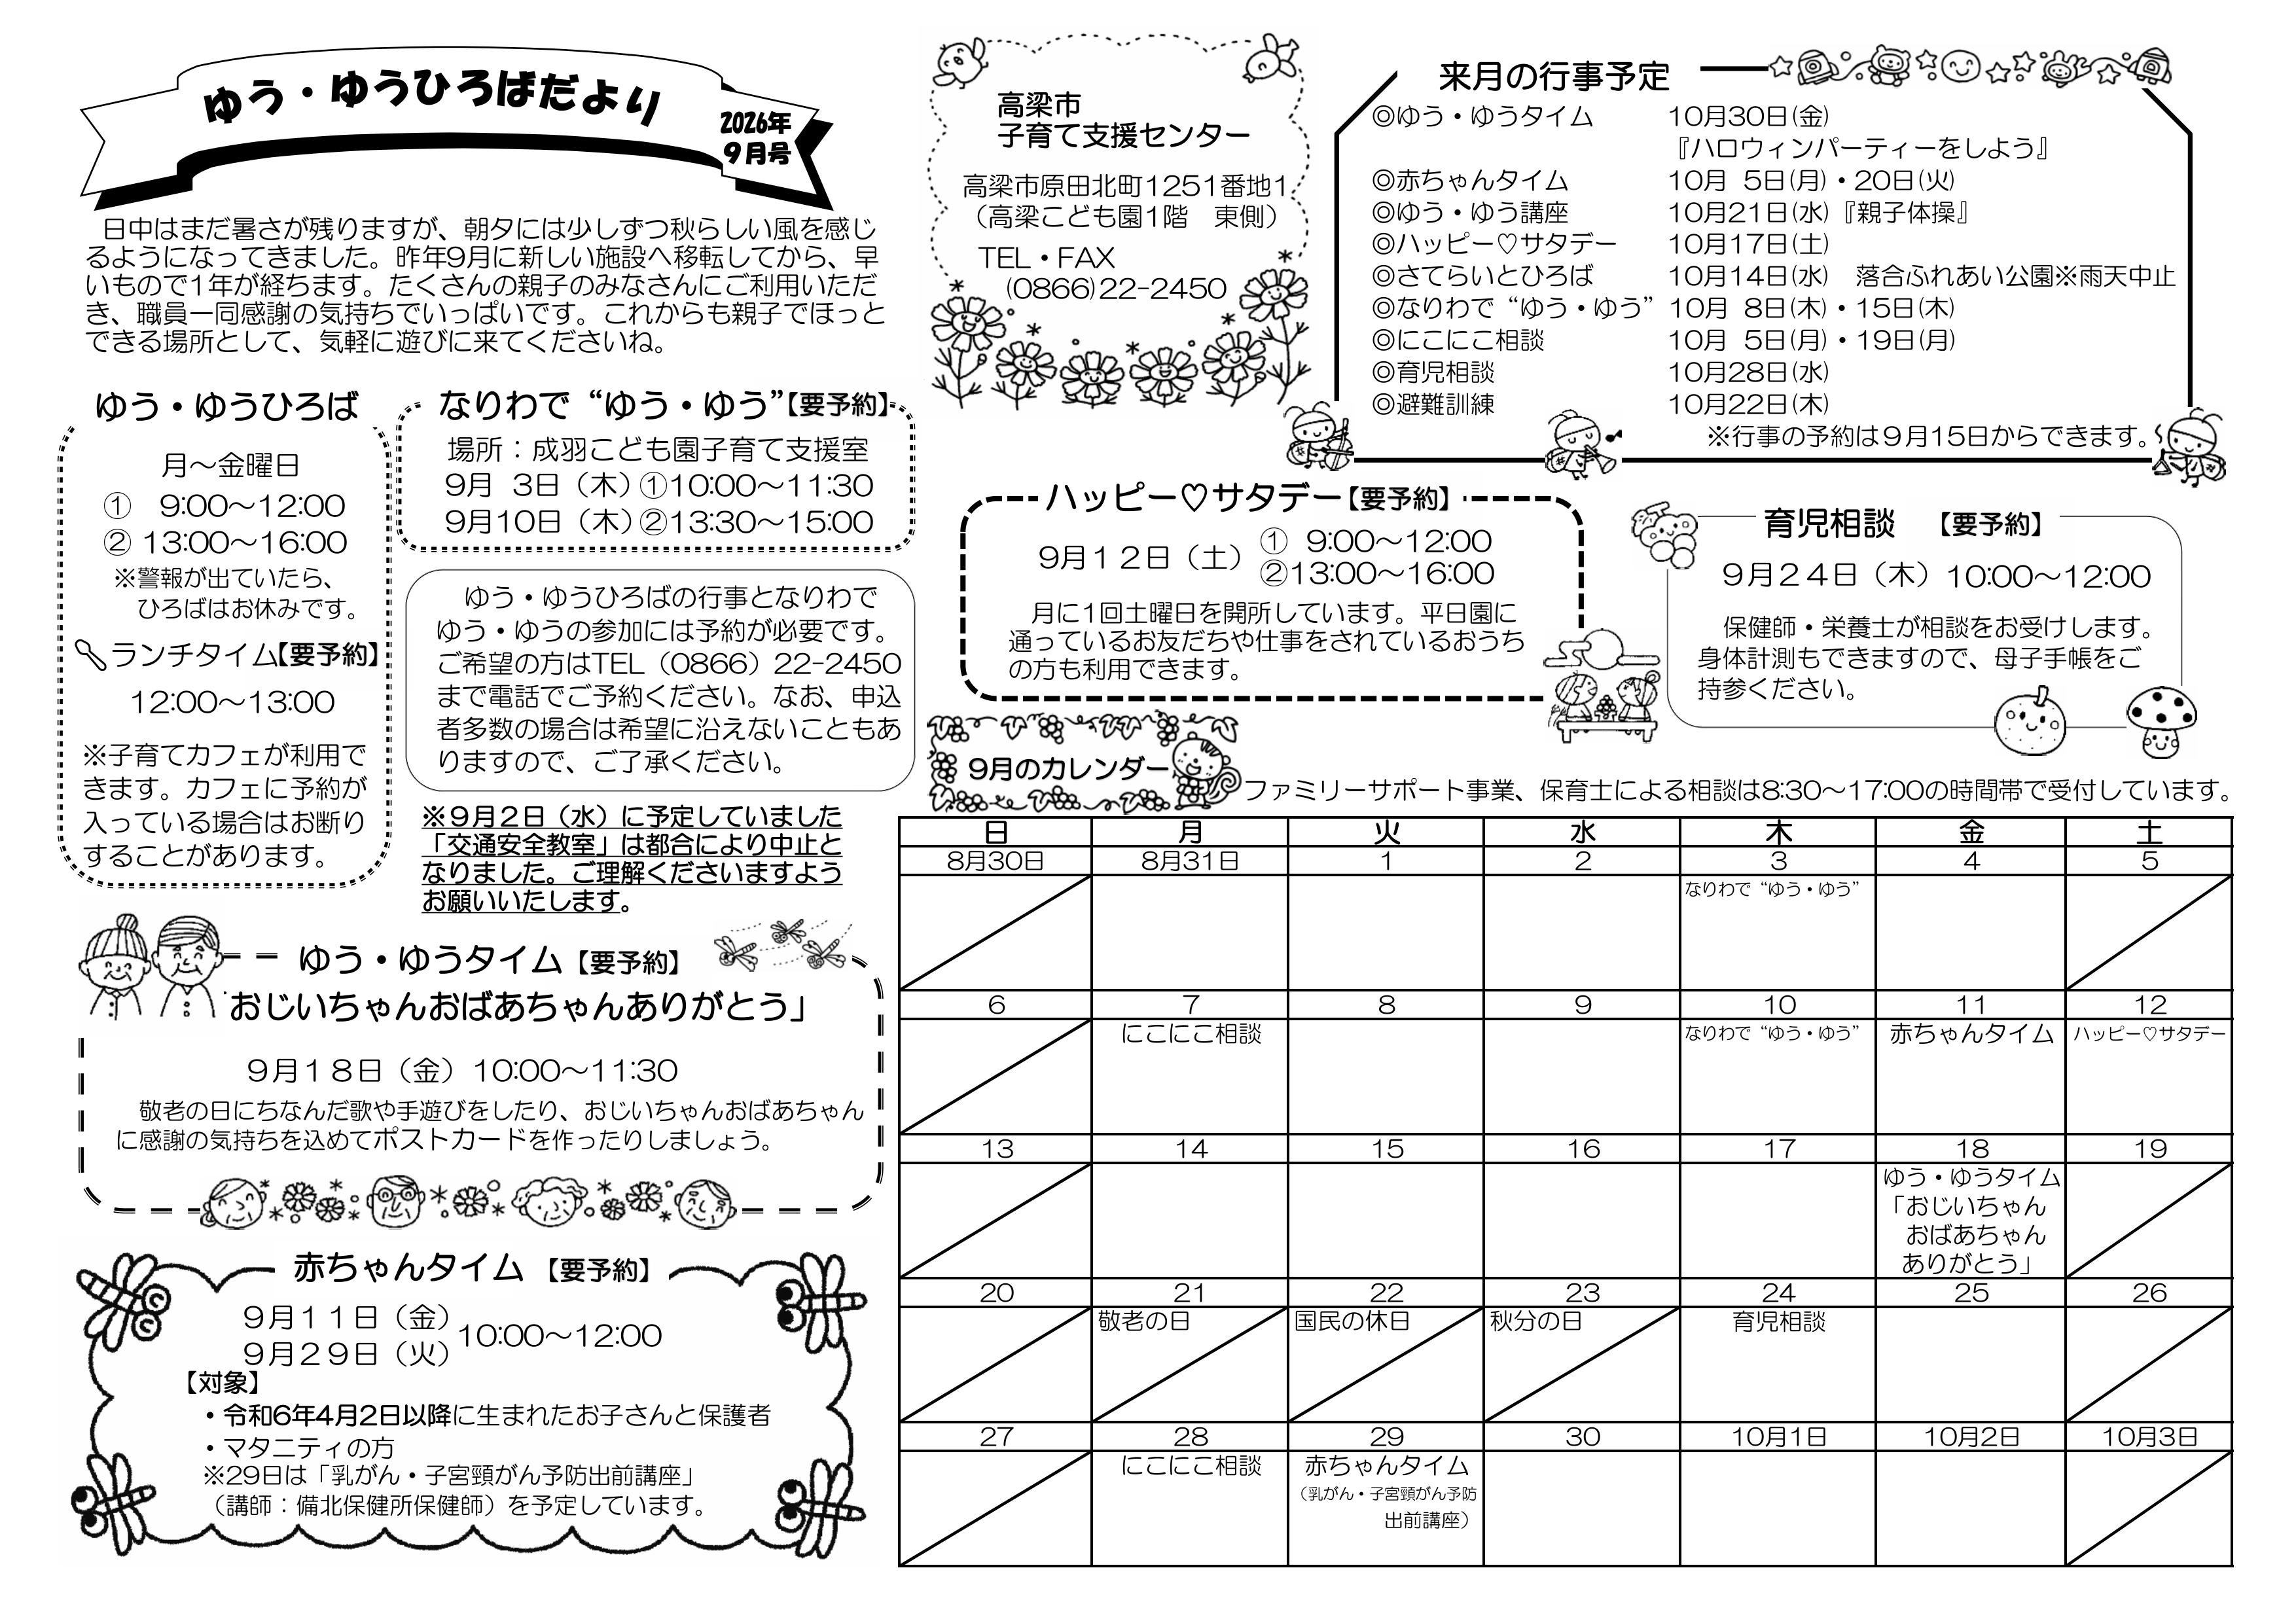 ゆう・ゆうひろばだより
2026年
9月号
日中はまだ暑さが残りますが、朝夕には少しずつ秋らしい風を感じ
るようになってきました。昨年9月に新しい施設へ移転してから、早
いもので1年が経ちます。たくさんの親子のみなさんにご利用いただ
き、職員一同感謝の気持ちでいっぱいです。これからも親子でほっと
できる場所として、気軽に遊びに来てくださいね。
ゆう・ゆうひろば
月～金曜日
① 9:00～12:00
② 13:00～16:00
※警報が出ていたら、
ひろばはお休みです。
ランチタイム【要予約】
12:00～13:00
※子育てカフェが利用で
きます。カフェに予約が
入っている場合はお断り
することがあります。
なりわで“ゆう・ゆう”【要予約】
場所：成羽こども園子育て支援室
9月 3日（木）①10:00～11:30
9月10日（木）②13:30～15:00
ゆう・ゆうひろばの行事となりわで
ゆう・ゆうの参加には予約が必要です。
ご希望の方はTEL（0866）22-2450
まで電話でご予約ください。なお、申込
者多数の場合は希望に沿えないこともあ
りますので、ご了承ください。
※9月2日（水）に予定していました
「交通安全教室」は都合により中止と
なりました。ご理解くださいますよう
お願いいたします。
ゆう・ゆうタイム【要予約】
おじいちゃんおばあちゃんありがとう」
9月18日（金）10:00～11:30
敬老の日にちなんだ歌や手遊びをしたり、おじいちゃんおばあちゃん
に感謝の気持ちを込めてポストカードを作ったりしましょう。
赤ちゃんタイム【要予約】
9月11日（金）
9月29日（火）
10:00～12:00
【対象】
・令和6年4月2日以降に生まれたお子さんと保護者
・マタニティの方
※29日は「乳がん・子宮頸がん予防出前講座」
（講師：備北保健所保健師）を予定しています。
高梁市
子育て支援センター
高梁市原田北町1251番地1
（高梁こども園1階　東側）
TEL・FAX
(0866)22-2450
来月の行事予定
◎ゆう・ゆうタイム　10月30日(金)
『ハロウィンパーティーをしよう』
◎赤ちゃんタイム　10月 5日(月)・20日(火)
◎ゆう・ゆう講座　10月21日(水)『親子体操』
◎ハッピー♡サタデー　10月17日(土)
◎さてらいとひろば　10月14日(水)　落合ふれあい公園※雨天中止
◎なりわで“ゆう・ゆう”　10月 8日(木)・15日(木)
◎にこにこ相談　10月 5日(月)・19日(月)
◎育児相談　10月28日(水)
◎避難訓練　10月22日(木)
※行事の予約は9月15日からできます。
ハッピー♡サタデー【要予約】
9月12日（土）
① 9:00～12:00
②13:00～16:00
月に1回土曜日を開所しています。平日園に
通っているお友だちや仕事をされているおうち
の方も利用できます。
育児相談　【要予約】
9月24日（木）10:00～12:00
保健師・栄養士が相談をお受けします。
身体計測もできますので、母子手帳をご
持参ください。
9月のカレンダー
ファミリーサポート事業、保育士による相談は8:30～17:00の時間帯で受付しています。
日 月 火 水 木 金 土
8月30日 8月31日 1 2 3 4 5
なりわで“ゆう・ゆう”
6 7 8 9 10 11 12
にこにこ相談 なりわで“ゆう・ゆう” 赤ちゃんタイム ハッピー♡サタデー
13 14 15 16 17 18 19
ゆう・ゆうタイム
「おじいちゃん
おばあちゃん
ありがとう」
20 21 22 23 24 25 26
敬老の日 国民の休日 秋分の日 育児相談
27 28 29 30 10月1日 10月2日 10月3日
にこにこ相談 赤ちゃんタイム
（乳がん・子宮頸がん予防
出前講座）